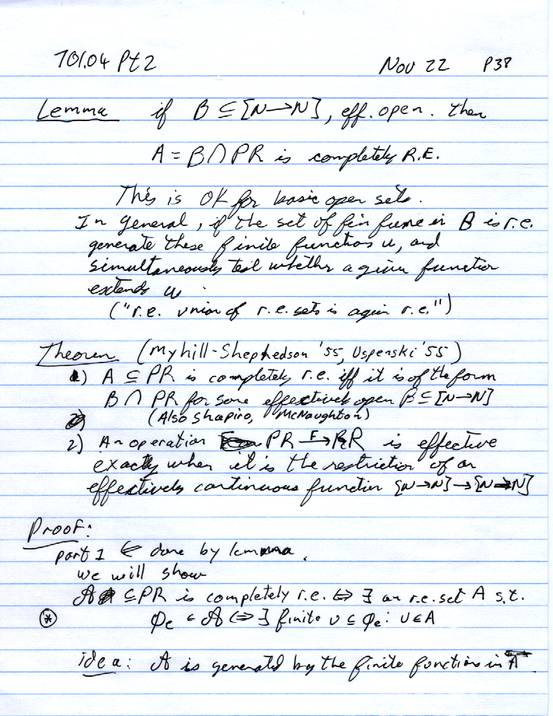 701.04 Pt 2 Nov 22 P38
Lemma if B ⊆ [N→N], eff. open. then
A = B ∩ PR is completely R.E.
This is OK for basic open sets.
In general, if the set of fin func in B is r.e.
generate these finite functions u, and
simultaneously test whether a given function
extends u.
("r.e. union of r.e. sets is again r.e.")
Theorem (Myhill-Shephedson '55, Uspenski '55)
1) A ⊆ PR is completely r.e. iff it is of the form
B ∩ PR for some effectively open B ⊆ [N→N]
(Also Shapiro, McNaughton)
2) An operation PR F→ PR is effective
exactly when it is the restriction of an
effectively continuous function [N→N]→[N→N]
Proof:
part 1 ⇐ done by lemma.
we will show
A ⊆ PR is completely r.e. ⇔ ∃ an r.e. set A s.t.
(*) φe ∈ A ⇔ ∃ finite u ⊆ φe : u ∈ A
idea: A is generated by the finite function in A